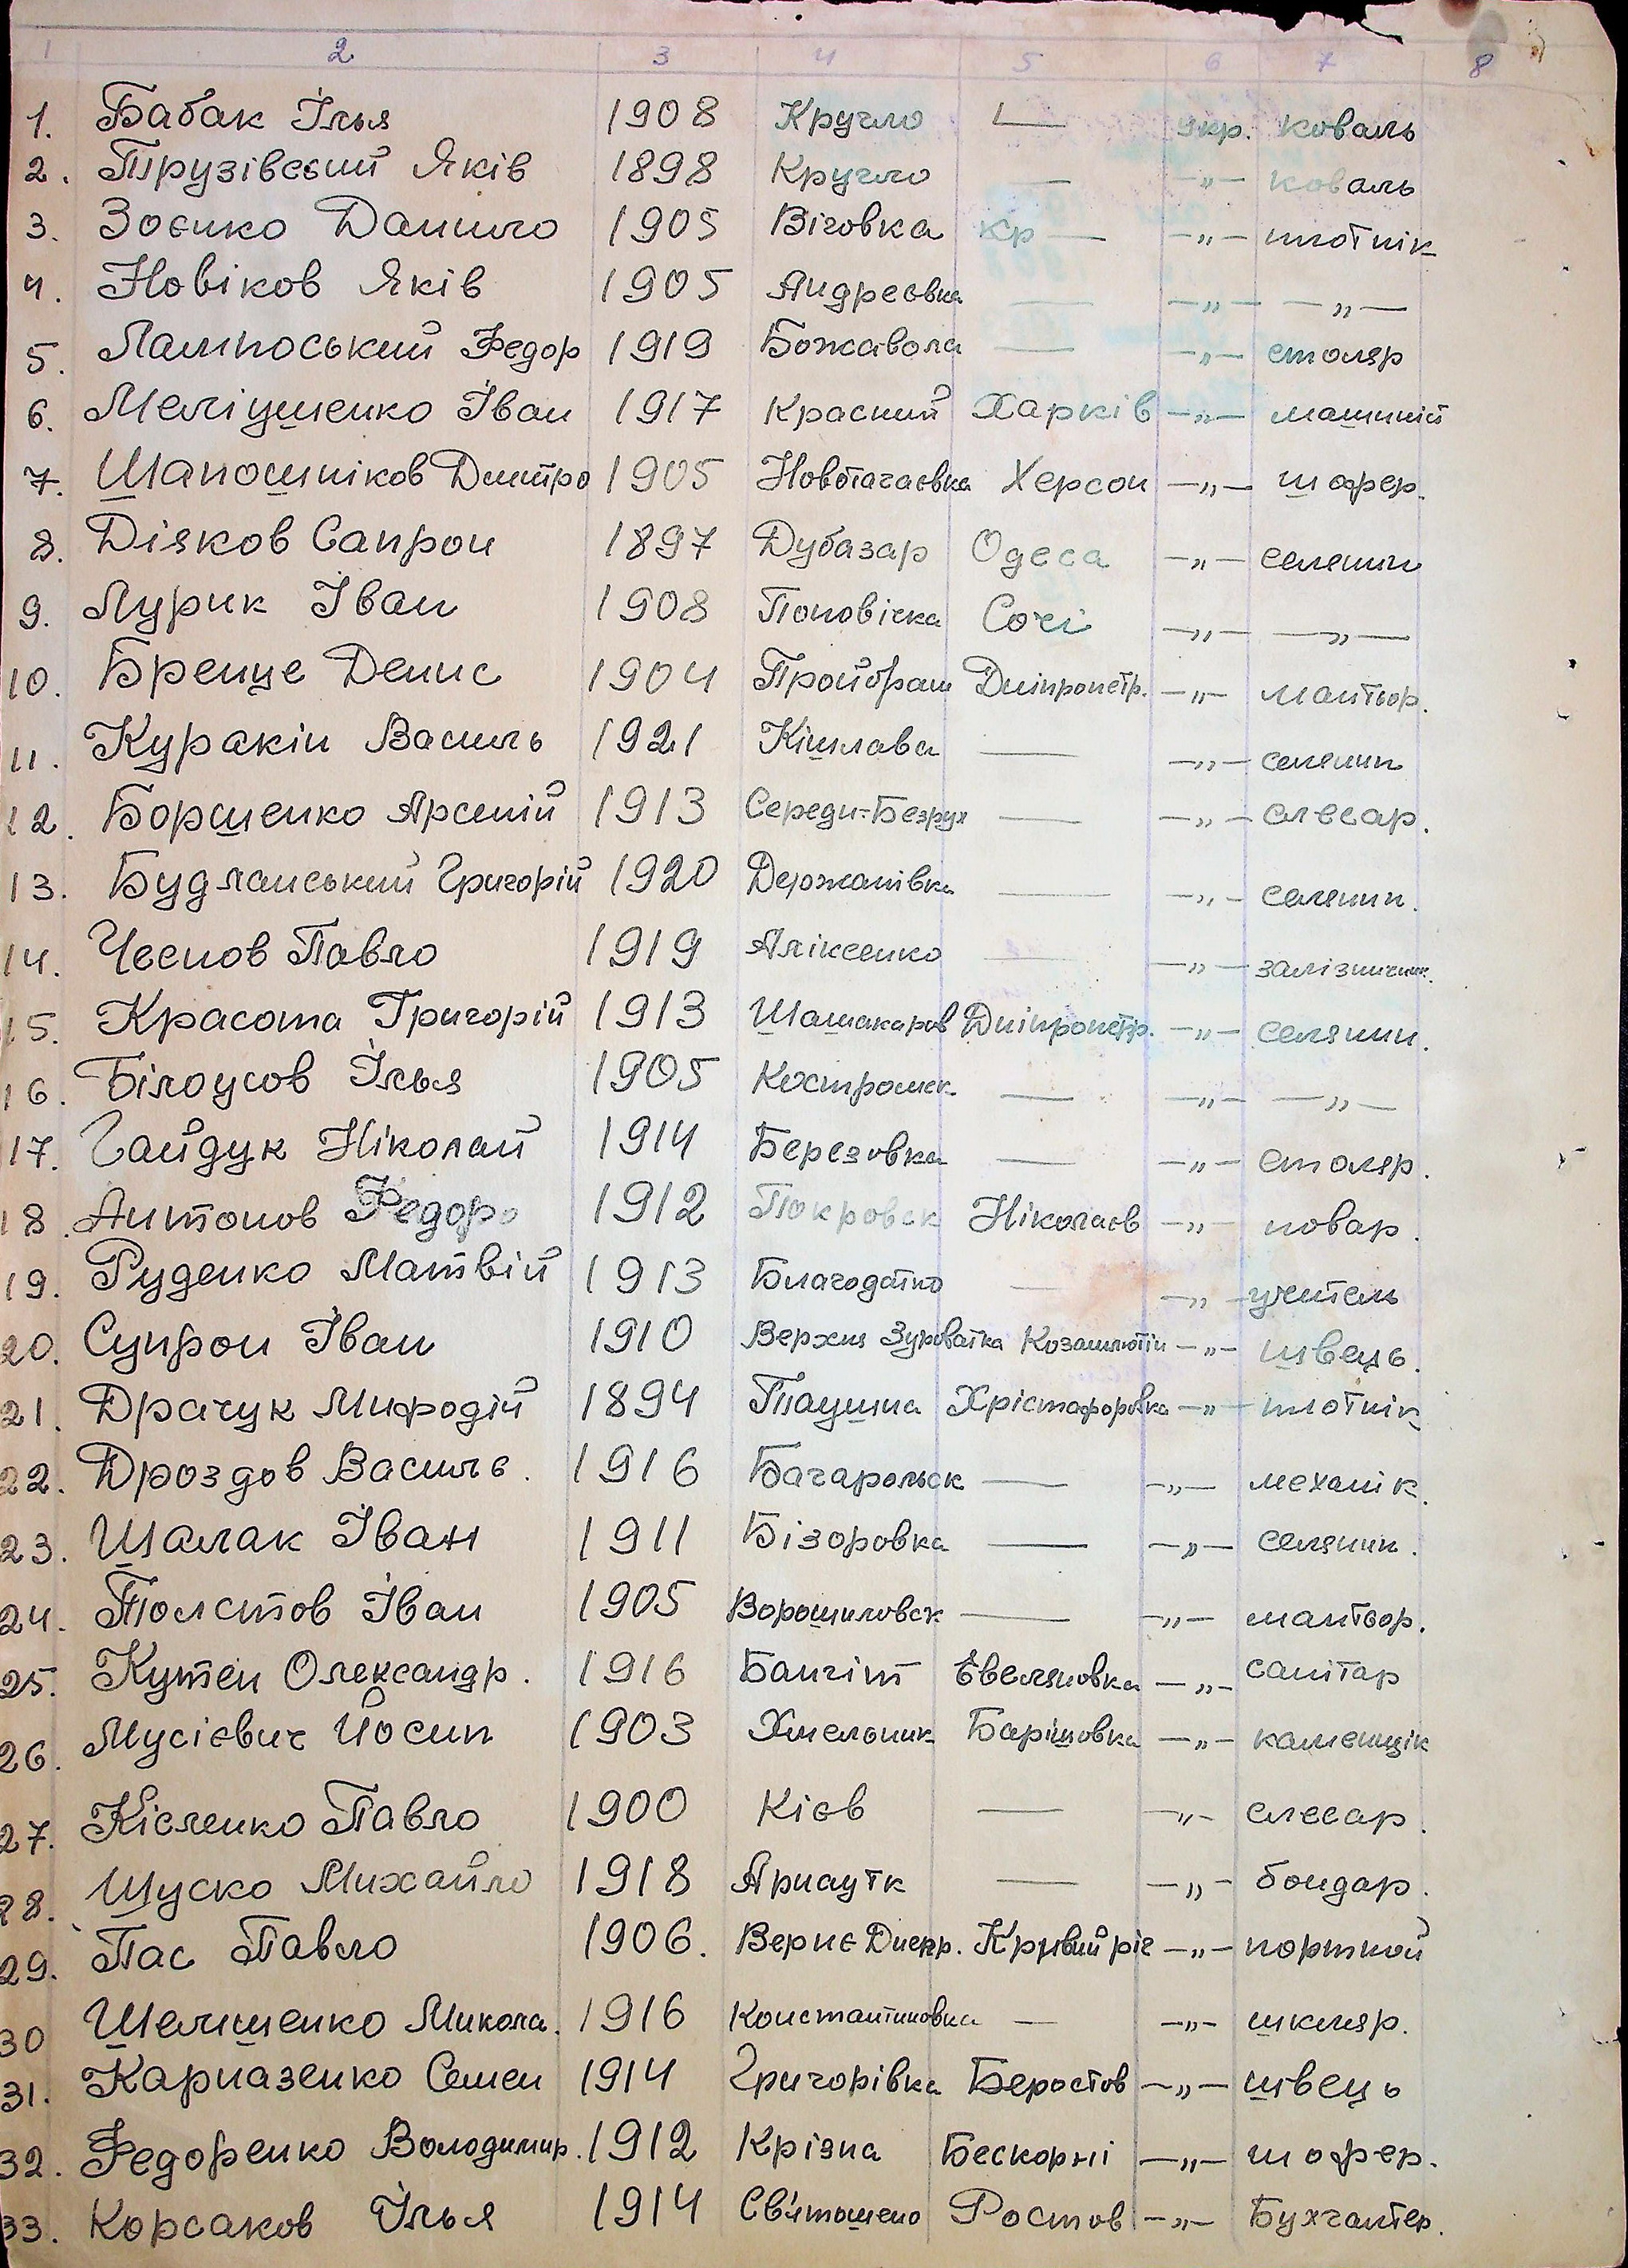 1 2 3 4 5 6 7 8
1. Бабак Ілья 1908 Кругло — укр. коваль
2. Трузівський Яків 1898 Кругло — —„— коваль
3. Зоєнко Данило 1905 Віговка Кр — —„— плотнік
4. Новіков Яків 1905 Андреєвка — —„— —„—
5. Лампоський Федор 1919 Божавола — —„— столяр
6. Меліушенко Іван 1917 Красний Харків —„— машиніст
7. Шапошніков Дмитро 1905 Новотагаєвка Херсон —„— шофер.
8. Дізков Сапрон 1897 Дубазар Одеса —„— селянин
9. Лурик Іван 1908 Поповічка Сочі —„— —„—
10. Бренце Денис 1904 Пройбраш Дніпропетр. —„— мантьор.
11. Куракін Василь 1921 Кішлава — —„— селенин
12. Боршенко Арсеній 1913 Середи-Безрук — —„— слесар.
13. Будланський Григорій 1920 Держанівка — —„— селянин.
14. Чеснов Павло 1919 Аліксенко — —„— залізничник.
15. Красота Григорій 1913 Шашакаров Дніпропетр. —„— селянин.
16. Білоусов Ілья 1905 Костромск — —„— —„—
17. Гайдук Ніколай 1914 Березовка — —„— столяр.
18. Антонов Федоро 1912 Покровск Ніколаєв —„— повар.
19. Руденко Матвій 1913 Благодатно — —„— учитель
20. Супрон Іван 1910 Верхня Зуроватка Козашлютін —„— швець.
21. Драчук Мифодій 1894 Таушна Хрістафоровка —„— плотнік
22. Дроздов Василь. 1916 Багарольск — —„— механік.
23. Шалак Іван 1911 Бізоровка — —„— селянин.
24. Толстов Іван 1905 Ворошиловск — —„— мантьор.
25. Кутен Олександр. 1916 Банчіт Євеляновка —„— санітар
26. Мусієвич Йосип 1903 Хмельник Барішовка —„— каменщік
27. Кісленко Павло 1900 Кієв — —„— слесар.
28. Шуско Михайло 1918 Арнаутк — —„— бондар.
29. Пас Павло 1906. Верпє Днепр. Кривий ріг —„— портной
30 Шелишенко Микола. 1916 Константиновка — —„— шкляр.
31. Карпазенко Семен 1914 Григорівка Беростов —„— швець
32. Федоренко Володимир. 1912 Крізна Бескорні —„— шофер.
33. Корсаков Ілья 1914 Св'ятошено Ростов —„— Бухгалтер.